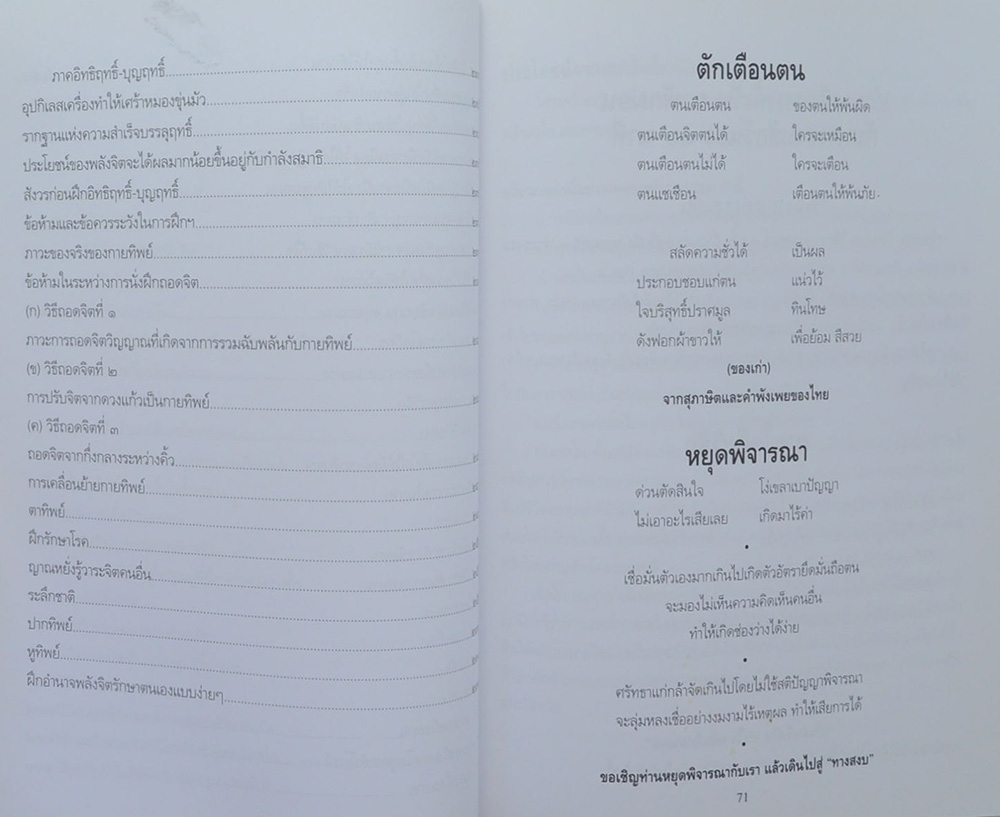 ภาคอิทธิฤทธิ์-บุญฤทธิ์
อุปกิเลสเครื่องทำให้เศร้าหมองขุ่นมัว
รากฐานแห่งความสำเร็จบรรลุฤทธิ์
ประโยชน์ของพลังจิตจะได้ผลมากน้อยขึ้นอยู่กับกำลังสมาธิ
สังวรก่อนฝึกอิทธิฤทธิ์-บุญฤทธิ์
ข้อห้ามและข้อควรระวังในการฝึกฯ
ภาวะของจริงของกายทิพย์
ข้อห้ามในระหว่างการนั่งฝึกถอดจิต
(ก) วิธีถอดจิตที่ ๑
ภาวะการถอดจิตวิญญาณที่เกิดจากการรวมฉับพลันกับกายทิพย์
(ข) วิธีถอดจิตที่ ๒
การปรับจิตจากดวงแก้วเป็นกายทิพย์
(ค) วิธีถอดจิตที่ ๓
ถอดจิตจากกึ่งกลางระหว่างคิ้ว
การเคลื่อนย้ายกายทิพย์
ตาทิพย์
ฝึกรักษาโรค
ญาณหยั่งรู้วาระจิตคนอื่น
ระลึกชาติ
ปากทิพย์
หูทิพย์
ฝึกอำนาจพลังจิตรักษาตนเองแบบง่ายๆ
ตักเตือนตน
ตนเตือนตน ของตนให้พ้นผิด
ตนเตือนจิตตนได้ ใครจะเหมือน
ตนเตือนตนไม่ได้ ใครจะเตือน
ตนแชเชือน เตือนตนให้พ้นภัย
สลัดความชั่วได้ เป็นผล
ประกอบชอบแก่ตน แน่วไว้
ใจบริสุทธิ์ปราศมูล ทินโทษ
ดังฟอกผ้าขาวให้ เพื่อย้อม สีสวย
(ของเก่า)
จากสุภาษิตและคำพังเพยของไทย
หยุดพิจารณา
ด่วนตัดสินใจ โง่เขลาเบาปัญญา
ไม่เอาอะไรเสียเลย เกิดมาไร้ค่า
•
เชื่อมั่นตัวเองมากเกินไปเกิดตัวอัตรายึดมั่นถือตน
จะมองไม่เห็นความคิดเห็นคนอื่น
ทำให้เกิดช่องว่างได้ง่าย
•
ศรัทธาแก่กล้าจัดเกินไปโดยไม่ใช้สติปัญญาพิจารณา
จะลุ่มหลงเชื่ออย่างงมงายไร้เหตุผล ทำให้เสียการได้
•
ขอเชิญท่านหยุดพิจารณากับเรา แล้วเดินไปสู่ “ทางสงบ”
71